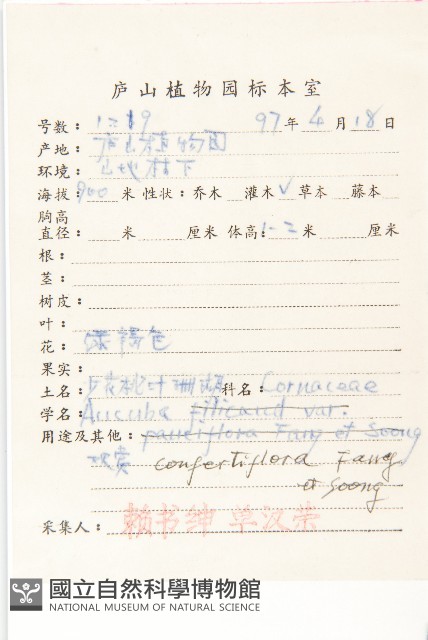 庐山植物园标本室
号数：1219 97年4月18日
产地：庐山植物园
环境：山地林下
海拔：900米 性状：乔木 灌木√ 草本 藤本
胸高
直径： 米 厘米 体高：1-2米 厘米
根：
茎：
树皮：
叶：
花：绿褐色
果实：
土名：桃叶珊瑚 科名：Cornaceae
学名：Aucuba filicauda var.
用途及其他：pauciflora Fang et Soong
观赏 confertiflora Fang
et Soong
采集人：赖书绅 单汉荣
國立自然科學博物館
NATIONAL MUSEUM OF NATURAL SCIENCE